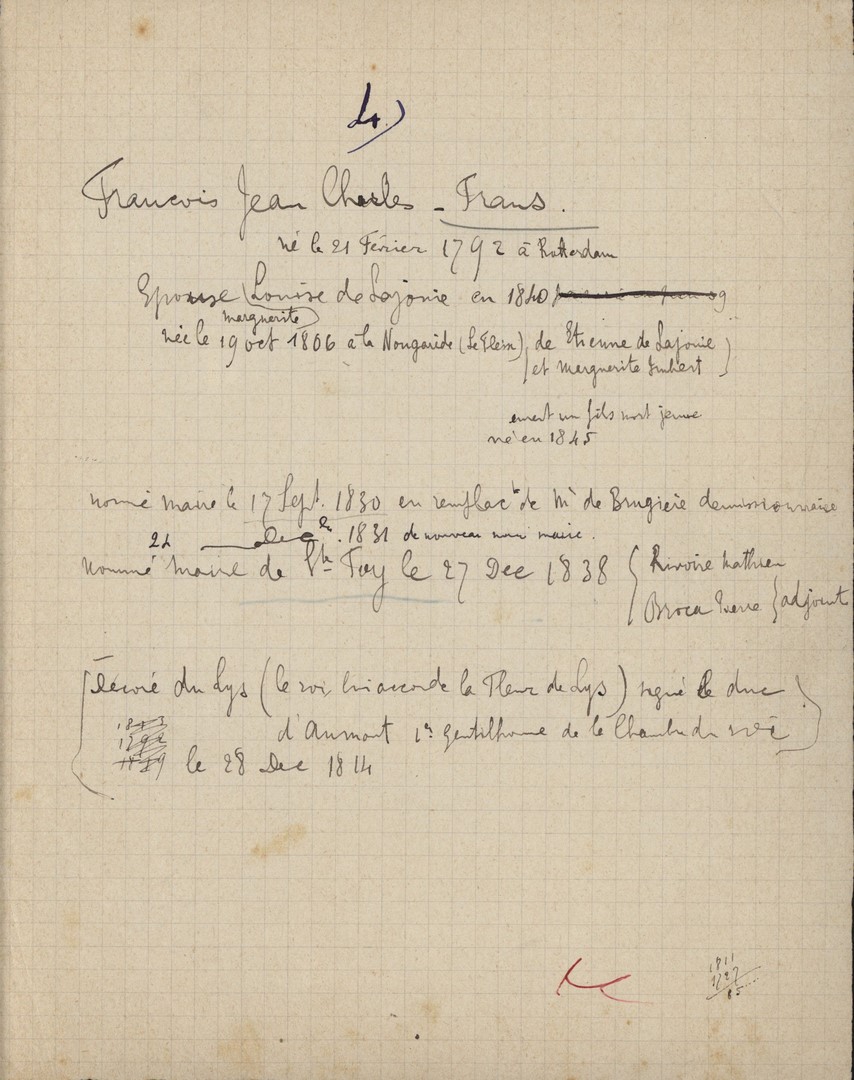 4)
François Jean Charles - Frans.
né le 21 Février 1792 à Rotterdam
Epouse Louise de Lajonie en 1840
marguerite
née le 19 oct 1806 à la Nougarède (Le Fleix) de Etienne de Lajonie
et Marguerite Imbert
eurent un fils mort jeune
né en 1845
nommé maire le 17 Sept. 1830 en remplact de Mr de Brugière démissionnaire
21 Dec . 1831 de nouveau maire.
nommé maire de Ste Foy le 27 Dec 1838 Rivoire Mathieu
Broca Pierre adjoint
Décoré du Lys (le roi lui accorde la Fleur de Lys) signé le duc
d'Aumont 1er gentilhomme de la Chambre du roi
le 28 Dec 1814